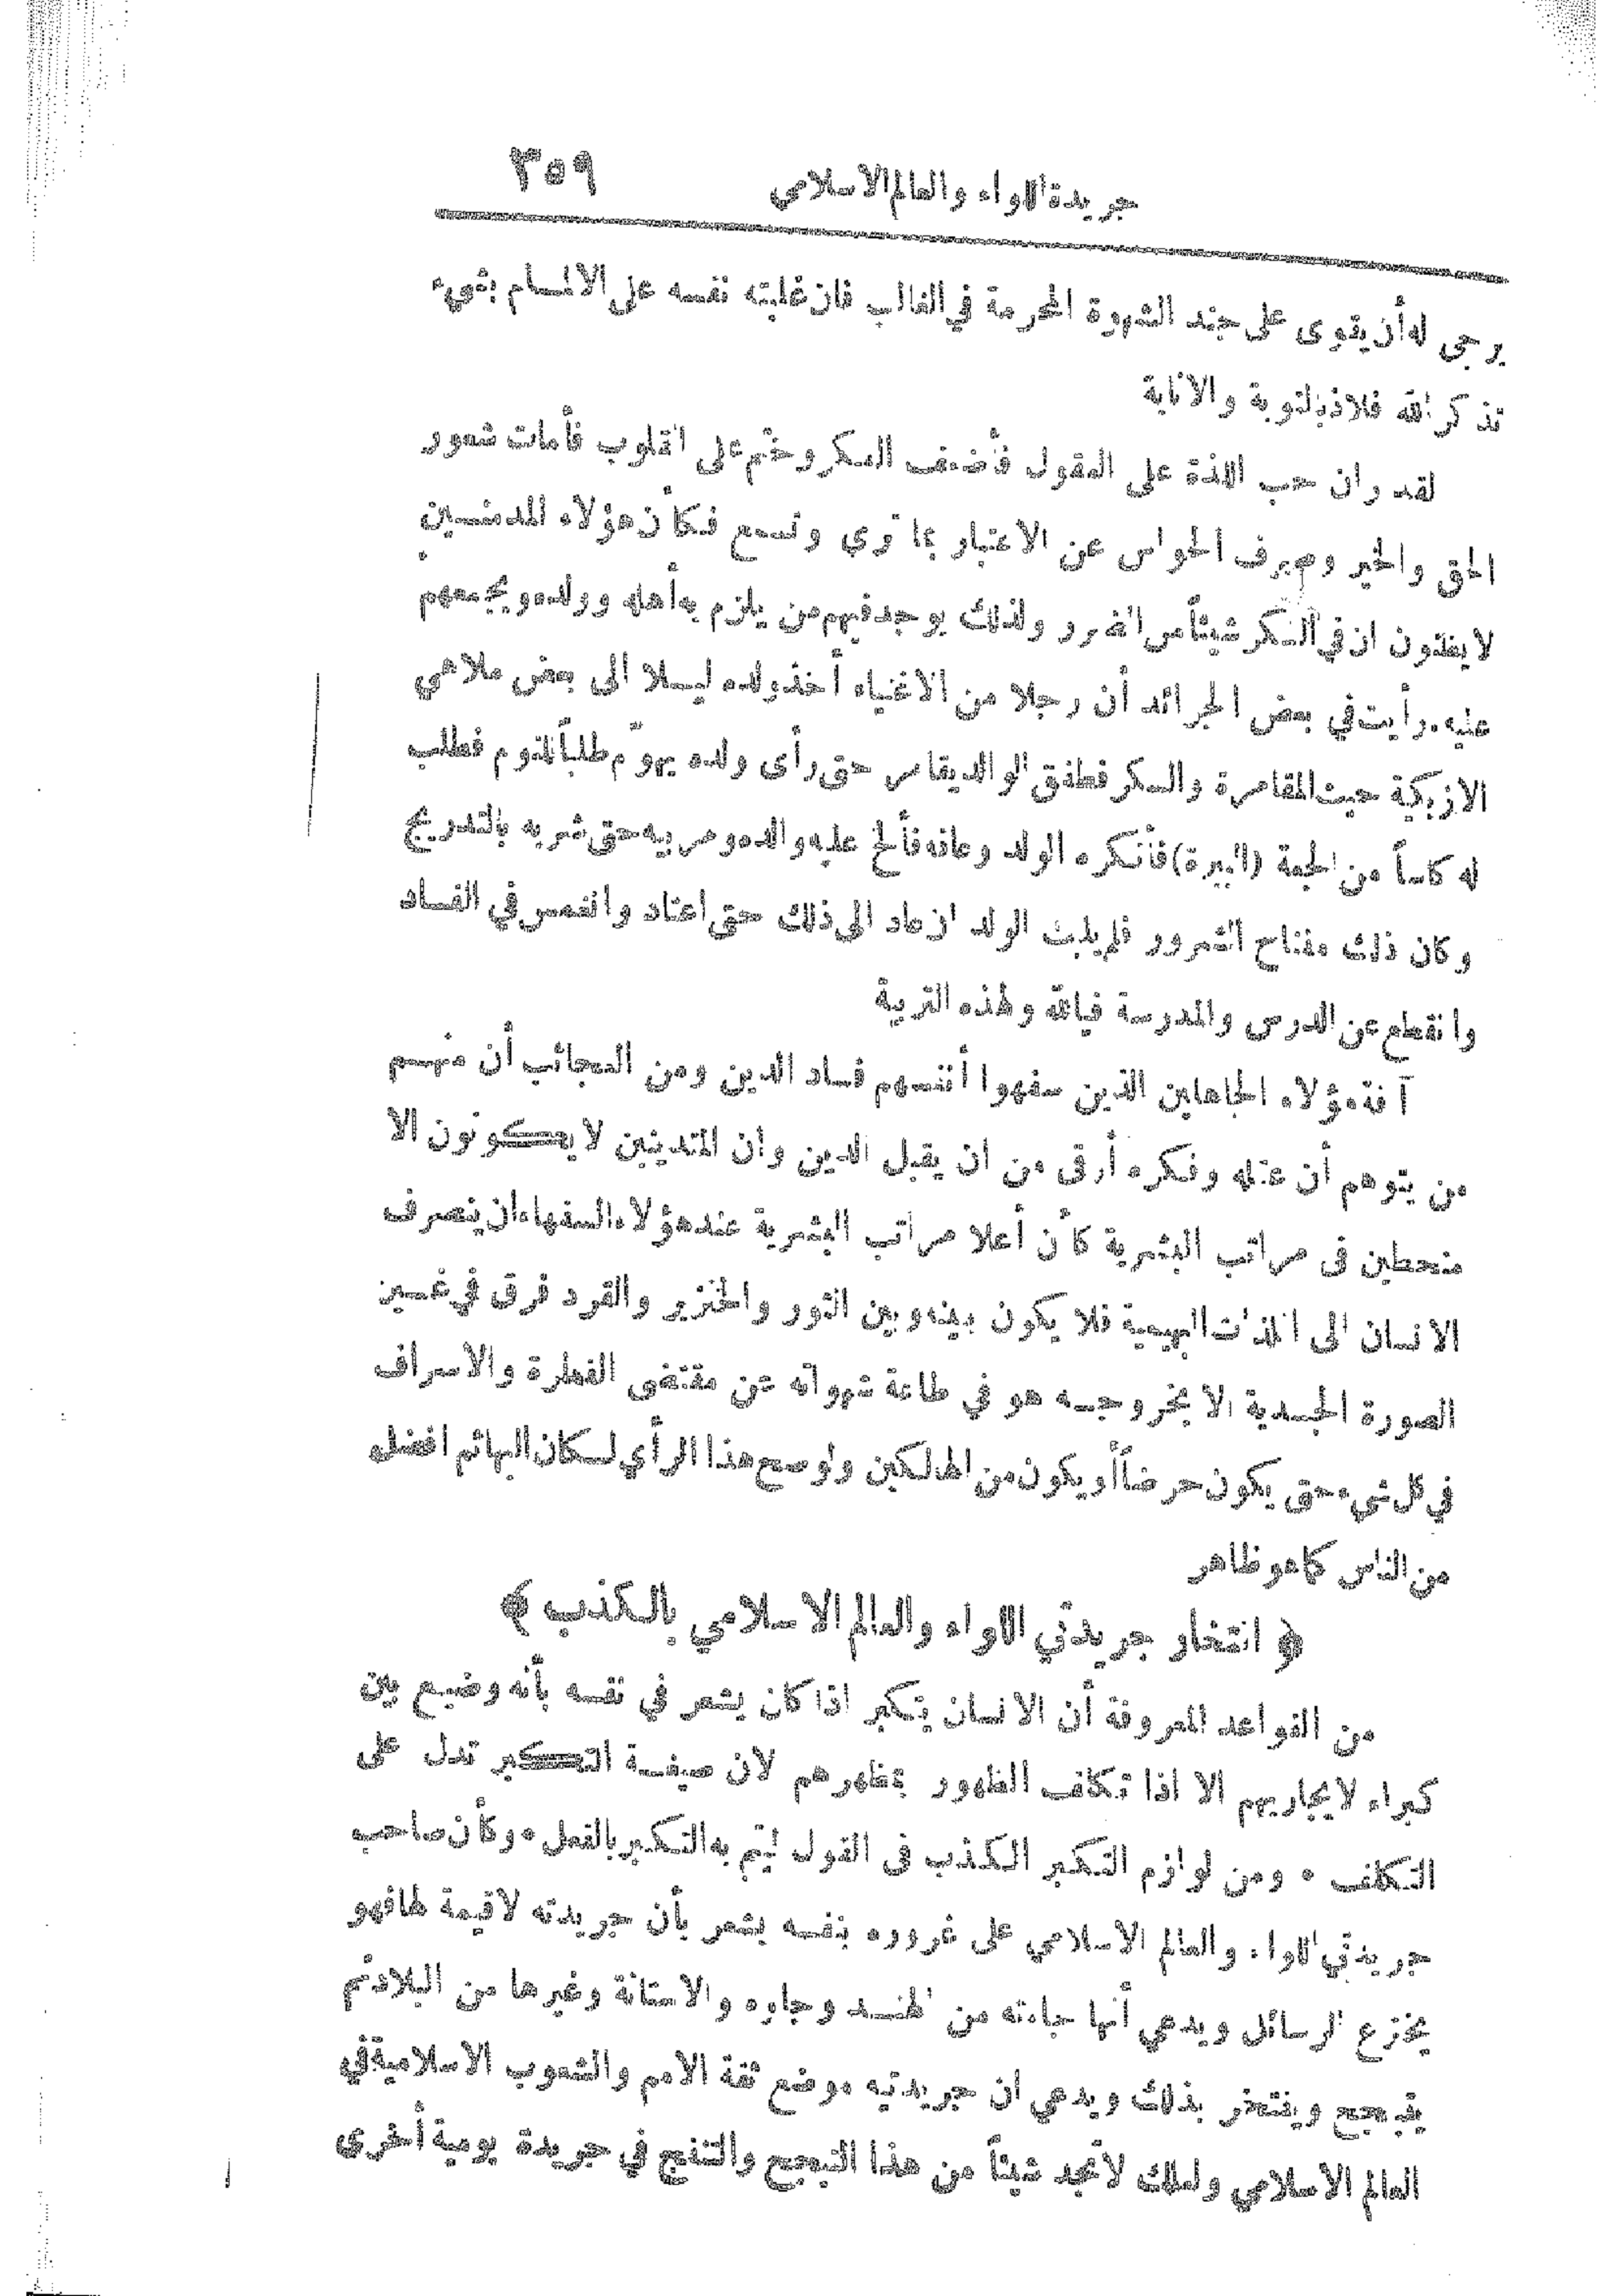 جريدة اللواء والعالم الاسلامي ٣٥٩
يرجى له أن يقوى على جند الشهوة المحرمة في الغالب فان غلبته نفسه على الالمام بشيء
تذكر الله فلاذ بالتوبة والانابة
لقد ران حب اللذة على العقول فأضعف الفكر وختم على القلوب فأمات شعور
الحق والخير وصرف الحواس عن الاعتبار بما ترى وتسمع فكأن هؤلاء المدمنين
لا يعتقدون ان في السكر شيئاً من الضرر ولذلك يوجد فيهم من يلزم به أهله وولده ويجمعهم
عليه. رأيت في بعض الجرائد أن رجلا من الاغنياء أخذ ولده ليلا الى بعض ملاهي
الازبكية حيث المقامرة والسكر فطفق الوالد يقامر حتى رأى ولده يهوّم طلباً للنوم فطلب
له كاساً من الجعة (البيرة) فأنكره الولد وعافه فألح عليه والده ومربيه حتى شربه بالتدريج
وكان ذلك مفتاح الشرور فلم يلبث الولد ان عاد الى ذلك حتى اعتاد وانغمس في الفساد
وانقطع عن الدرس والمدرسة فيالله ولهذه التربية
آفة هؤلاء الجاهلين الذين سفهوا أنفسهم فساد الدين ومن العجائب أن منهم
من يتوهم أن عقله وفكره أرقى من ان يقبل الدين وان المتدينين لا يكونون الا
منحطين في مراتب البشرية كأن أعلا مراتب البشرية عند هؤلاء السفهاء ان ينصرف
الانسان الى اللذات البهيمية فلا يكون بينه وبين الثور والخنزير والقرد فرق في غير
الصورة الجسدية الا بخروجه هو في طاعة شهواته عن مقتضى الفطرة والاسراف
في كل شيء حتى يكون حرضاً أو يكون من الهالكين ولو صح هذا الرأي لكان البهائم افضل
من الناس كما هو ظاهر
﴿ افتخار جريدتي اللواء والعالم الاسلامي بالكذب ﴾
من القواعد المعروفة أن الانسان يتكبر اذا كان يشعر في نفسه بأنه وضيع بين
كبراء لا يجاريهم الا اذا تكلف الظهور بمظهرهم لان صيغة التكبر تدل على
التكلف . ومن لوازم التكبر الكذب في القول ليتم به التكبر بالفعل . وكأن صاحب
جريدتي اللواء والعالم الاسلامي على غروره بنفسه يشعر بأن جريدته لا قيمة لها فهو
يخترع الرسائل ويدعي أنها جاءته من الهند وجاوه والاستانة وغيرها من البلاد ثم
يتبجح ويفتخر بذلك ويدعي ان جريدتيه موضع ثقة الامم والشعوب الاسلامية في
العالم الاسلامي ولعلك لا تجد شيئاً من هذا التبجح والتنفج في جريدة يومية أخرى